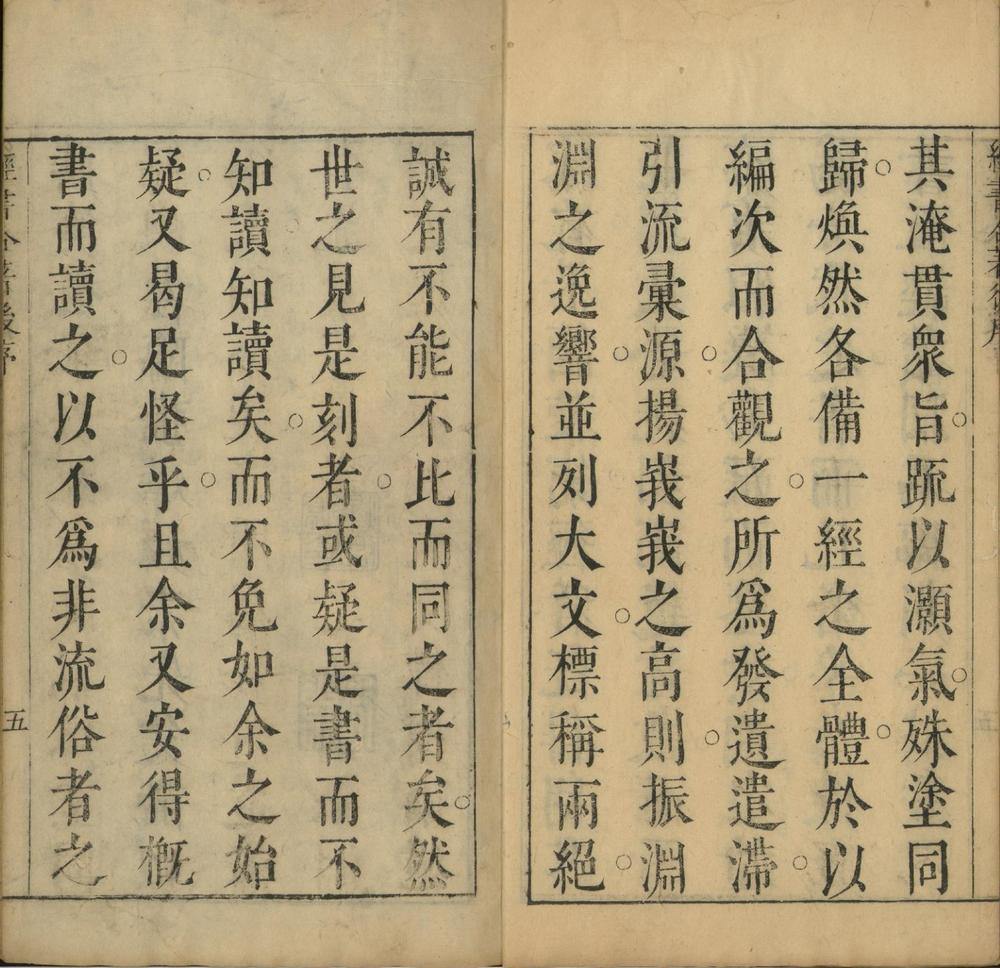 其淹貫衆旨䟽以灝氣殊塗同
歸煥然各備一經之全體於以
編次而合觀之所爲發遺遣滯
引流彙源揚峩峩之高則振淵
淵之逸響並列大文標稱兩絕
誠有不能不比而同之者矣然
世之見是刻者或疑是書而不
知讀知讀矣而不免如余之始
疑又曷足怪乎且余又安得槪
書而讀之以不爲非流俗者之
經書合著後序
五